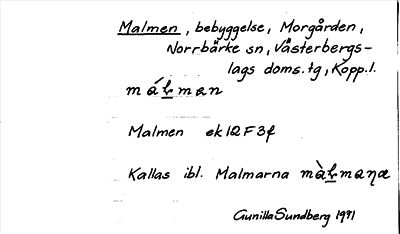 Malmen, bebyggelse, Morgården,
Norrbärke sn, Västerbergs-
lags doms.tg, Kopp.l.
Malmen ek12F3f
Kallas ibl. Malmarna
Gunilla Sundberg 1991